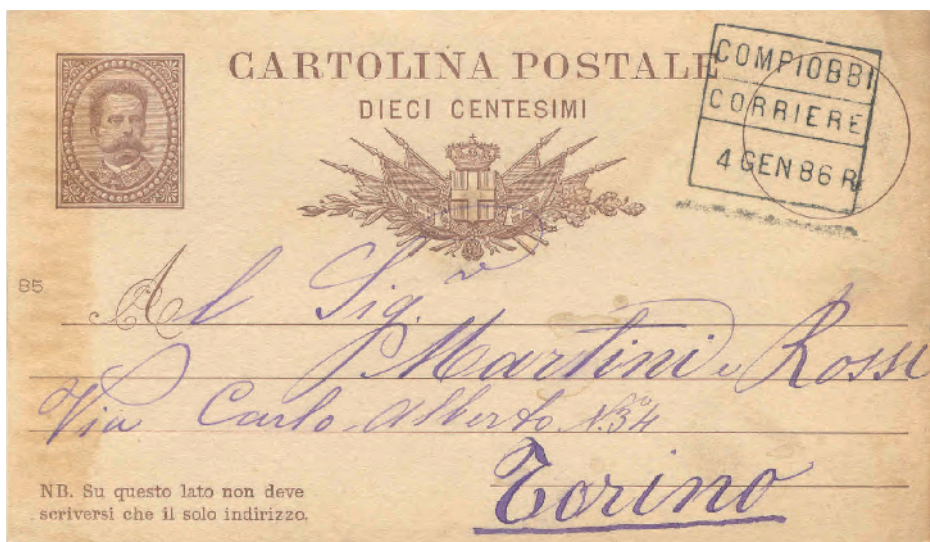 CARTOLINA POSTALE
DIECI CENTESIMI
COMPIOBBI
CORRIERE
4 GEN 86 R
85
Al Sig.re
Martini e Rossi
Via Carlo Alberto N.34
Torino
NB. Su questo lato non deve
scriversi che il solo indirizzo.